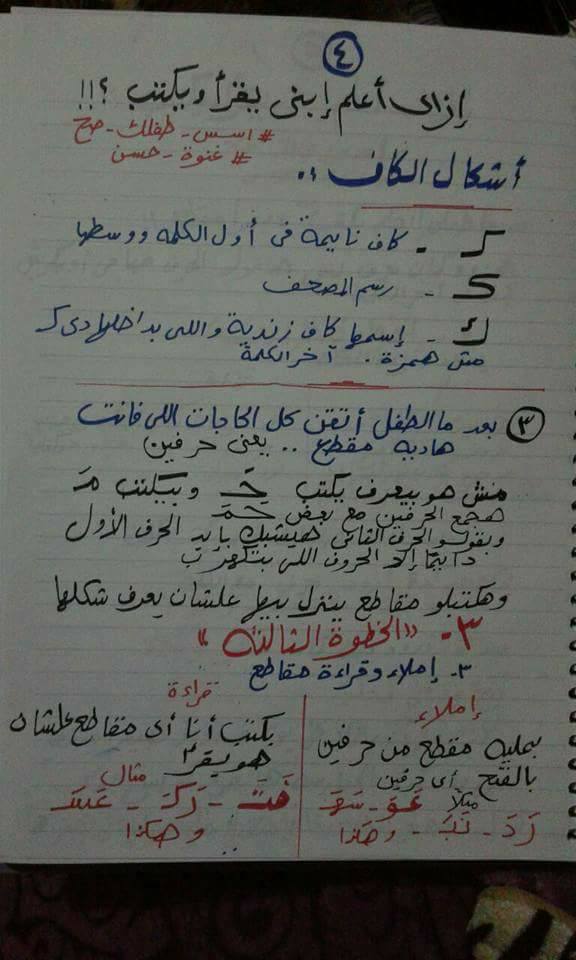 ٤
إزاى أعلم إبنى يقرأ ويكتب ؟!!
#اسس-طفلك-صح
#غنوة-حسن
أشكال الكاف :.
كـ - كاف نايمة فى أول الكلمه ووسطها
ک - رسم المصحف
ك - إسمها كاف زندية واللى بداخلها دى كـ
مش همزة . آخر الكلمة
٣ بعد ما الطفل أتقن كل الحاجات اللى فاتت
هاديه مقطع .. يعنى حرفين
مش هو بيعرف يكتب حَـ وبيكتب مَـ
هجمع الحرفين مع بعض حَمَـ
وبقوله الحرف التانى هيشبك بإيد الحرف الأول
دايمًا إلا الحروف اللى بتكهرب
وهكتبلو مقاطع ينزل بيها علشان يعرف شكلها
٣- "الخطوة الثالثة"
٣- إملاء وقراءة مقاطع
إملاء
بمليه مقطع من حرفين
بالفتح أى حرفين
مثلاً عَوَ - سَهَـ
رَدَ - نَبَـ - وهكذا
قراءة
بكتب أنا أى مقاطع علشان
هو يقرأ
مثال
هَتَـ - رَكَـ - عَسَـ
وهكذا